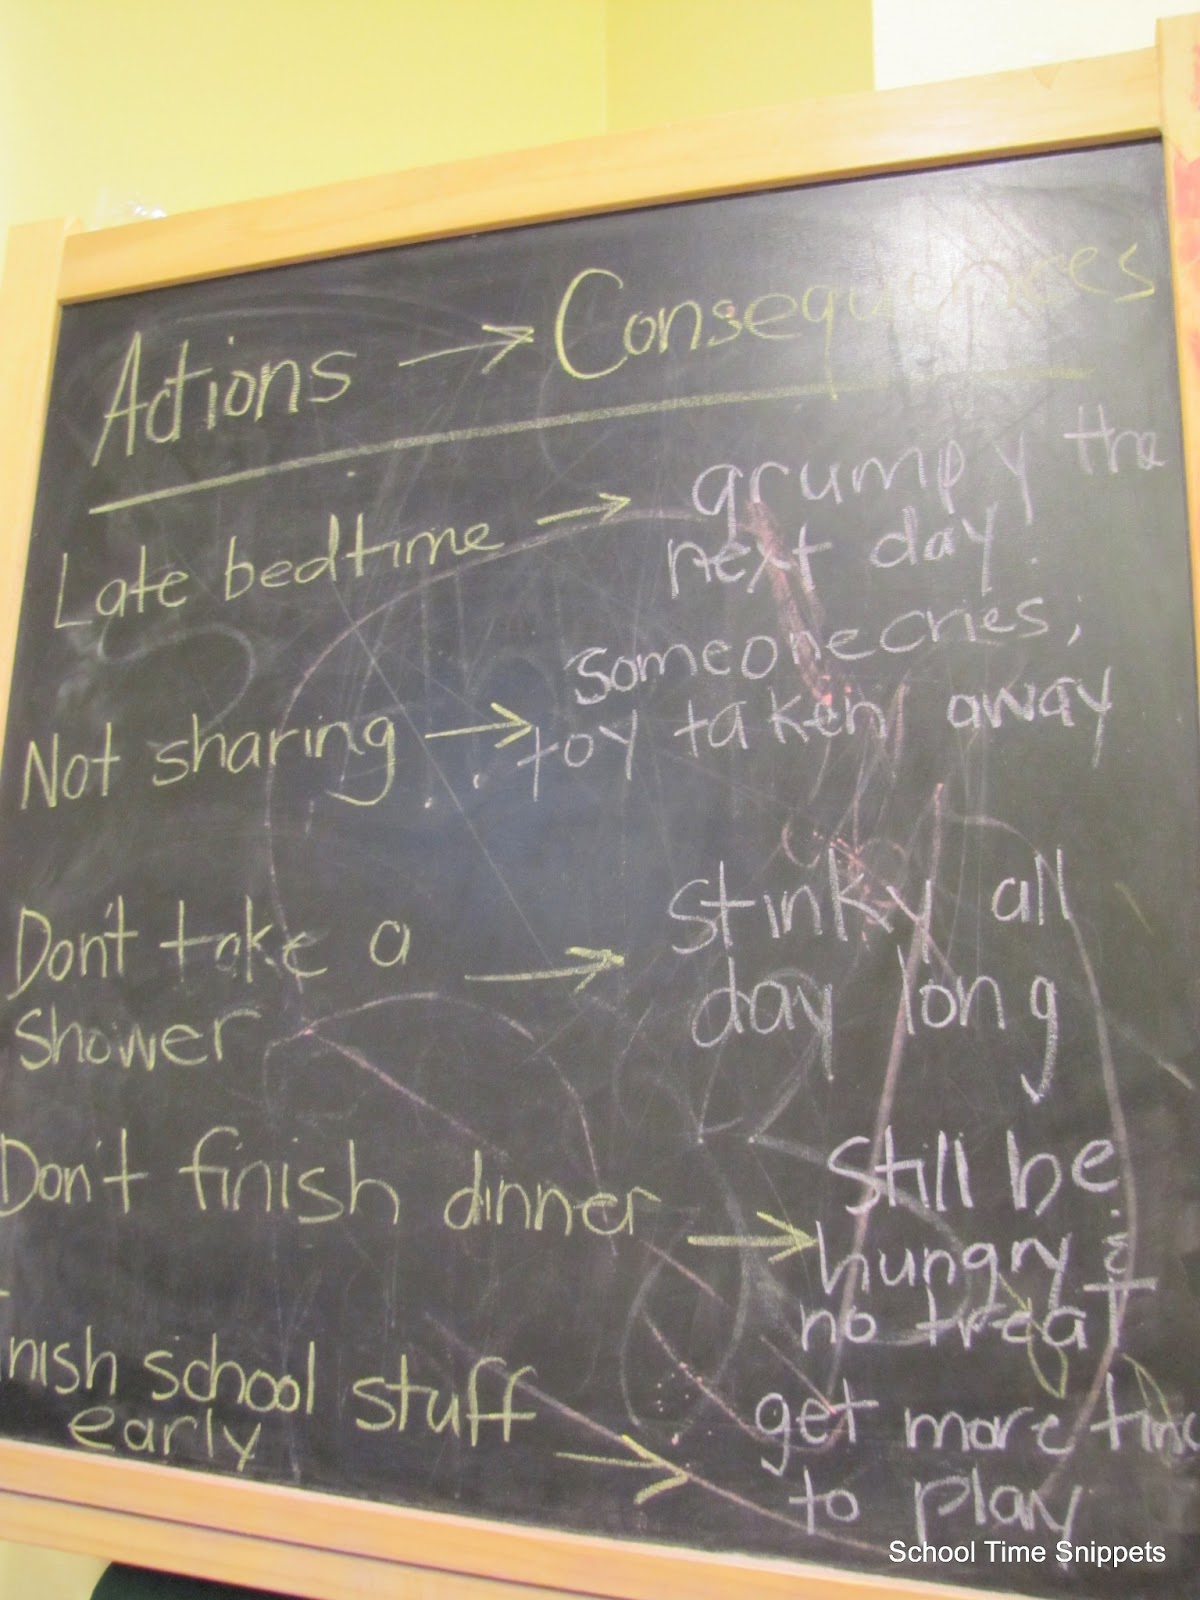 Actions → Consequences
Late bedtime → grumpy the
next day.
someone cries,
Not sharing → toy taken away
Don't take a → stinky all
shower day long
Don't finish dinner → still be
hungry &
no treat
nish school stuff → get more tim
early to play
School Time Snippets